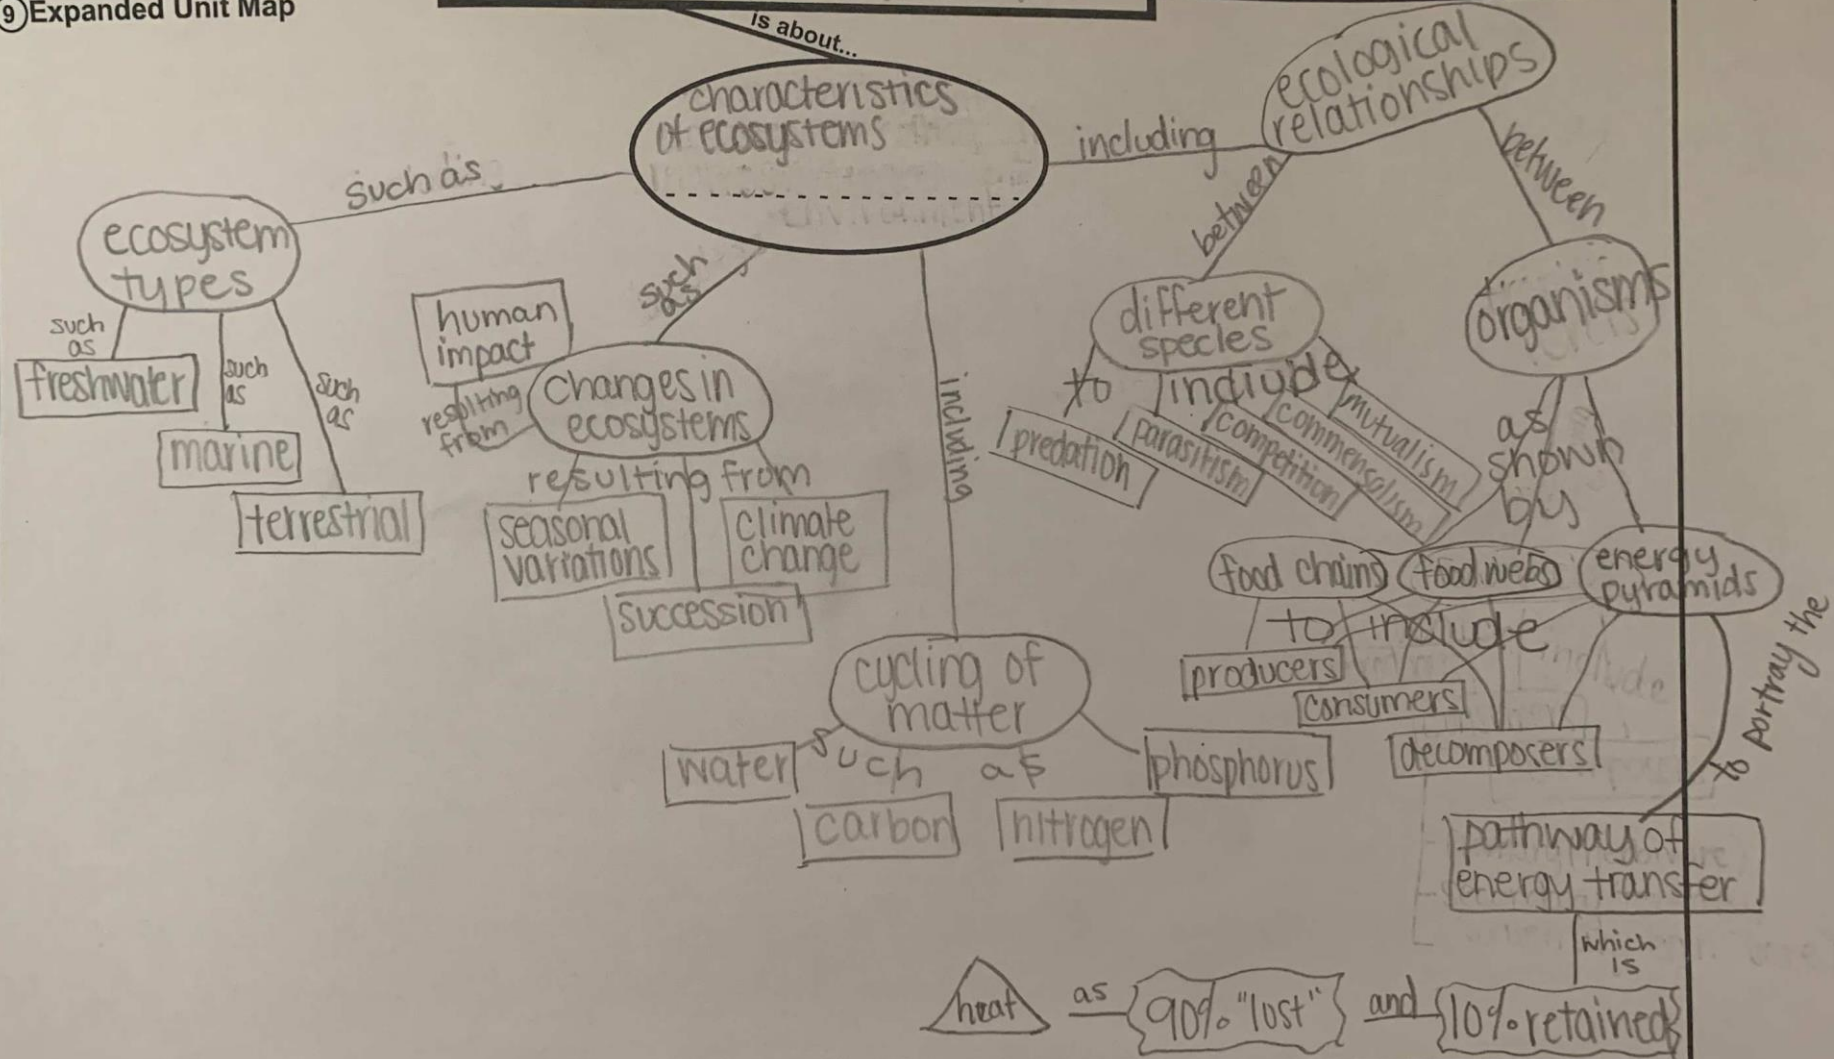 9 Expanded Unit Map
is about...
characteristics
of ecosystems
such as
ecosystem
types
such
as
freshwater
such
as
marine
such
as
terrestrial
such
as
human
impact
resulting
from
changes in
ecosystems
resulting from
seasonal
variations
climate
change
succession
including
cycling of
matter
such as
water
carbon
nitrogen
phosphorus
including
ecological
relationships
between
different
species
to include
predation
parasitism
competition
commensalism
mutualism
between
organisms
as
shown
by
food chains
food webs
energy
pyramids
to include
producers
consumers
decomposers
to portray the
pathway of
energy transfer
which
is
10% retained
and
90% "lost"
as
heat